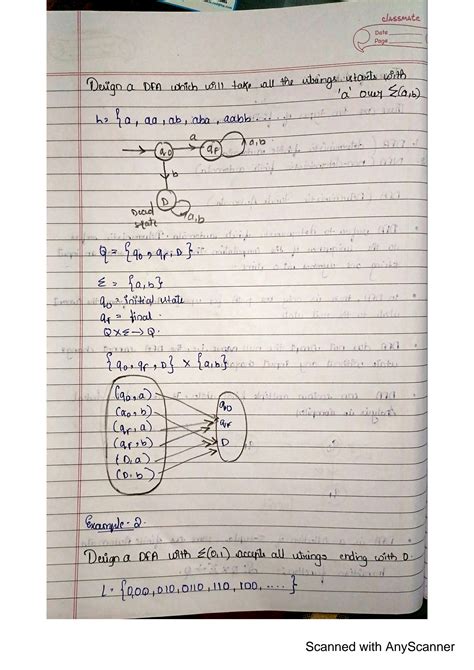 classmate
Date
Page
Design a DFA which will take all the strings starts with
'a' over Σ(a,b)
L = {a, aa, ab, aba, aabb....}
q0
a
qF
a,b
b
D
Dead
state
a,b
Q = {q0, qF, D}
Σ = {a,b}
q0 = initial state
qF = final.
Q×Σ → Q.
{q0, qF, D} × {a,b}
(q0, a)
(q0, b)
(qF, a)
(qF, b)
(D, a)
(D, b)
q0
qF
D
Example - 2.
Design a DFA with Σ(0,1) accepts all strings ending with 0.
L = {0,00, 010, 0110, 110, 100, .....}
Scanned with AnyScanner